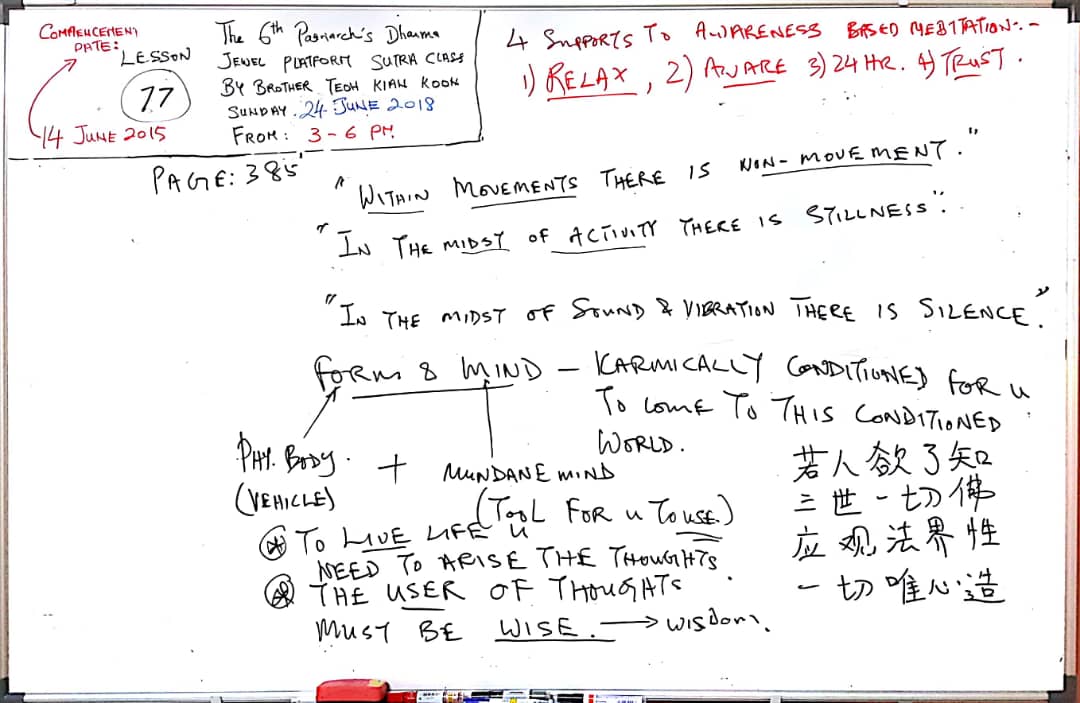 COMMENCEMENT
DATE:
14 JUNE 2015
LESSON
77
The 6th Patriarch's Dharma
JEWEL PLATFORM SUTRA CLASS
BY BROTHER TEOH KIAN KOON
SUNDAY. 24 JUNE 2018
FROM: 3-6 PM
4 SUPPORTS TO AWARENESS BASED MEDITATION:-
1) RELAX, 2) AWARE 3) 24 HR. 4) TRUST.
PAGE: 385
"WITHIN MOVEMENTS THERE IS NON-MOVEMENT."
"IN THE MIDST OF ACTIVITY THERE IS STILLNESS".
"IN THE MIDST OF SOUND & VIBRATION THERE IS SILENCE."
FORM & MIND – KARMICALLY CONDITIONED FOR u
TO COME TO THIS CONDITIONED
WORLD.
PHY. BODY. + MUNDANE MIND
(VEHICLE) (TOOL FOR u TO USE.)
* TO LIVE LIFE u
NEED TO ARISE THE THOUGHTS.
* THE USER OF THOUGHTS
MUST BE WISE. → wisdom.
若人欲了知
三世一切佛
应观法界性
一切唯心造